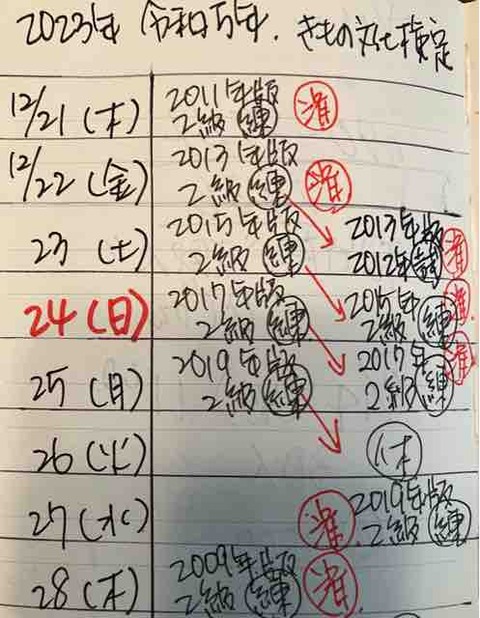 2023年 令和5年. きもの文化検定
12/21(木) 2011年版
2級 練 准
12/22(金) 2013年版
2級 練 准
23(土) 2015年版 2013年版
2級 練 2012年試 准
24(日) 2017年版 2015年 准.
2級 練 2級 練
25(月) 2019年版 2017年 准
2級 練 2級 練
26(火) 休
27(水) 准. 2019年版
2級 練
28(木) 2009年版
2級 練 准.